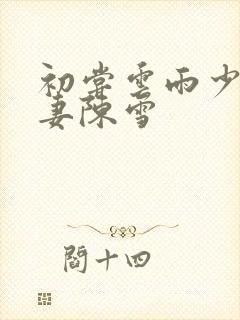 初尝雲雨少
妻陳雪
閻十四